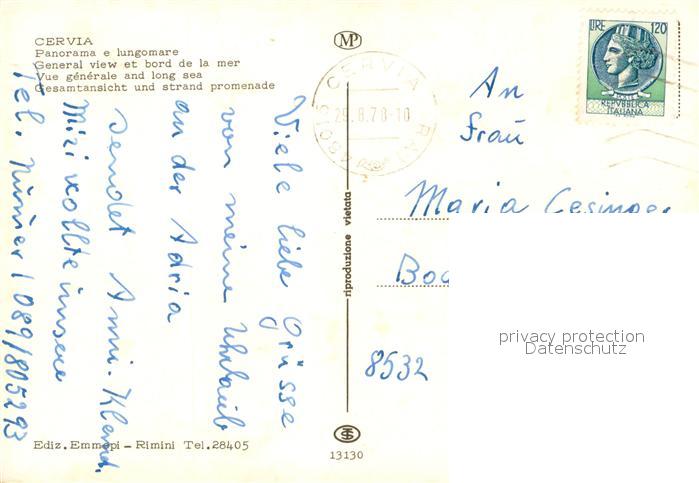 CERVIA
Panorama e lungomare
General view et bord de la mer
Vue générale and long sea
Gesamtansicht und strand promenade
MP
CERVIA
29.8.78-10
LIRE 120
REPVBBLICA
ITALIANA
An
Frau
Maria
8532
Viele liebe Grüsse
von meine Uhrlaub
an der Adria
sendet Anni. Klemt.
Mizi vollte unsere
Tel. Nümer 1 089/805293
riproduzione vietata
privacy protection
Datenschutz
Ediz.Emmepi - Rimini Tel.28405
13130